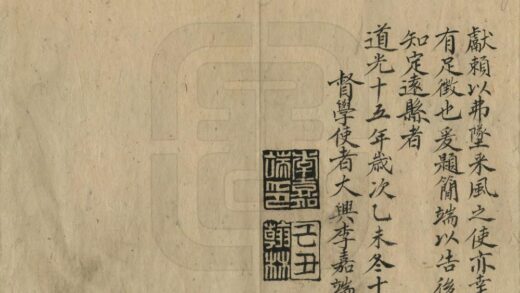 獻賴以弗墜采風之使亦幸
有足徵也爰題簡端以告後
知定遠縣者
道光十五年歲次乙未冬十
督學使者大興李嘉端
李嘉端印
己丑翰林